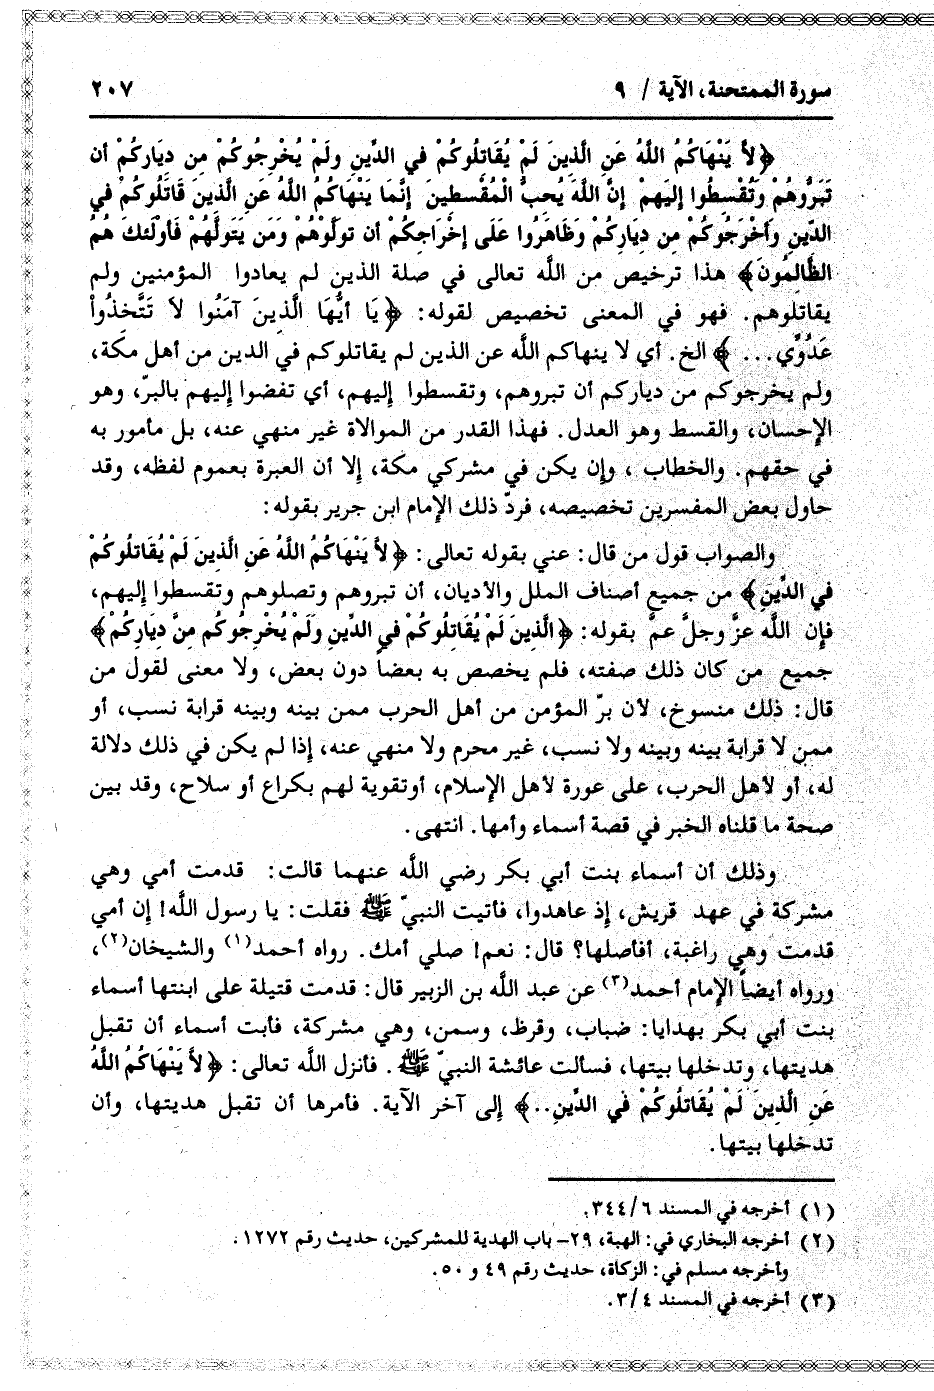 سورة الممتحنة، الآية / ٩
٢٠٧
﴿لاَ يَنْهَاكُمُ اللَّهُ عَنِ الَّذِينَ لَمْ يُقَاتِلُوكُمْ في الدِّينِ ولَمْ يُخْرِجُوكُمْ مِن دِيَارِكُمْ أن
تَبَرُّوهُمْ وَتُقْسِطُوا إلَيهِمْ إنَّ اللَّهَ يَحِبُّ الْمُقْسطِينَ إنَّمَا يَنْهَاكُمُ اللَّهُ عَنِ الَّذينَ قَاتَلُوكُمْ في
الدِّينِ وَأخْرَجُوكُمْ مِن دِيَارِكُمْ وَظَاهَرُوا عَلَى إخْرَاجِكُمْ أن تولَّوْهُمْ وَمَن يَتَولَّهُمْ فَأولَئكَ هُمُ
الظَّالِمُونَ﴾ هذا ترخيص من اللَّه تعالى في صلة الذين لم يعادوا المؤمنين ولم
يقاتلوهم. فهو في المعنى تخصيص لقوله: ﴿يَا أيُّهَا الَّذِينَ آمَنُوا لاَ تَتَّخِذُواْ
عَدُوِّي... ﴾ الخ. أي لا ينهاكم اللَّه عن الذين لم يقاتلوكم في الدين من أهل مكة،
ولم يخرجوكم من دياركم أن تبروهم، وتقسطوا إليهم، أي تفضوا إليهم بالبرّ، وهو
الإحسان، والقسط وهو العدل. فهذا القدر من الموالاة غير منهي عنه، بل مأمور به
في حقهم. والخطاب ، وإن يكن في مشركي مكة، إلا أن العبرة بعموم لفظه، وقد
حاول بعض المفسرين تخصيصه، فردّ ذلك الإمام ابن جرير بقوله:
والصواب قول من قال: عني بقوله تعالى: ﴿لاَ يَنْهَاكُمُ اللَّهُ عَنِ الَّذِينَ لَمْ يُقَاتِلُوكُمْ
في الدِّينِ﴾ من جميع أصناف الملل والأديان، أن تبروهم وتصلوهم وتقسطوا إليهم،
فإن اللَّه عزَّ وجلَّ عمَّ بقوله: ﴿الَّذِينَ لَمْ يُقَاتِلُوكُمْ في الدِّينِ وَلَمْ يُخْرِجُوكُم مِنَّ دِيَارِكُمْ﴾
جميع من كان ذلك صفته، فلم يخصص به بعضاً دون بعض، ولا معنى لقول من
قال: ذلك منسوخ، لأن برّ المؤمن من أهل الحرب ممن بينه وبينه قرابة نسب، أو
ممن لا قرابة بينه وبينه ولا نسب، غير محرم ولا منهي عنه، إذا لم يكن في ذلك دلالة
له، أو لأهل الحرب، على عورة لأهل الإسلام، أوتقوية لهم بكراع أو سلاح، وقد بين
صحة ما قلناه الخبر في قصة أسماء وأمها. انتهى.
وذلك أن أسماء بنت أبي بكر رضي اللَّه عنهما قالت: قدمت أمي وهي
مشركة في عهد قريش، إذ عاهدوا، فأتيت النبيّ ﷺ فقلت: يا رسول اللَّه! إن أمي
قدمت وهي راغبة، أفأصلها؟ قال: نعم! صلي أمك. رواه أحمد(١) والشيخان(٢)،
ورواه أيضاً الإمام أحمد(٣) عن عبد اللَّه بن الزبير قال: قدمت قتيلة على ابنتها أسماء
بنت أبي بكر بهدايا: ضباب، وقرظ، وسمن، وهي مشركة، فأبت أسماء أن تقبل
هديتها، وتدخلها بيتها، فسألت عائشة النبيّ ﷺ. فأنزل اللَّه تعالى: ﴿لاَ يَنْهَاكُمُ اللَّهُ
عَنِ الَّذِينَ لَمْ يُقَاتِلُوكُمْ فِي الدِّينِ..﴾ إلى آخر الآية. فأمرها أن تقبل هديتها، وأن
تدخلها بيتها.
(١) أخرجه في المسند ٦/ ٣٤٤.
(٢) أخرجه البخاري في: الهبة، ٢٩- باب الهدية للمشركين، حديث رقم ١٢٧٢.
وأخرجه مسلم في: الزكاة، حديث رقم ٤٩ و ٥٠.
(٣) أخرجه في المسند ٤/ ٣.